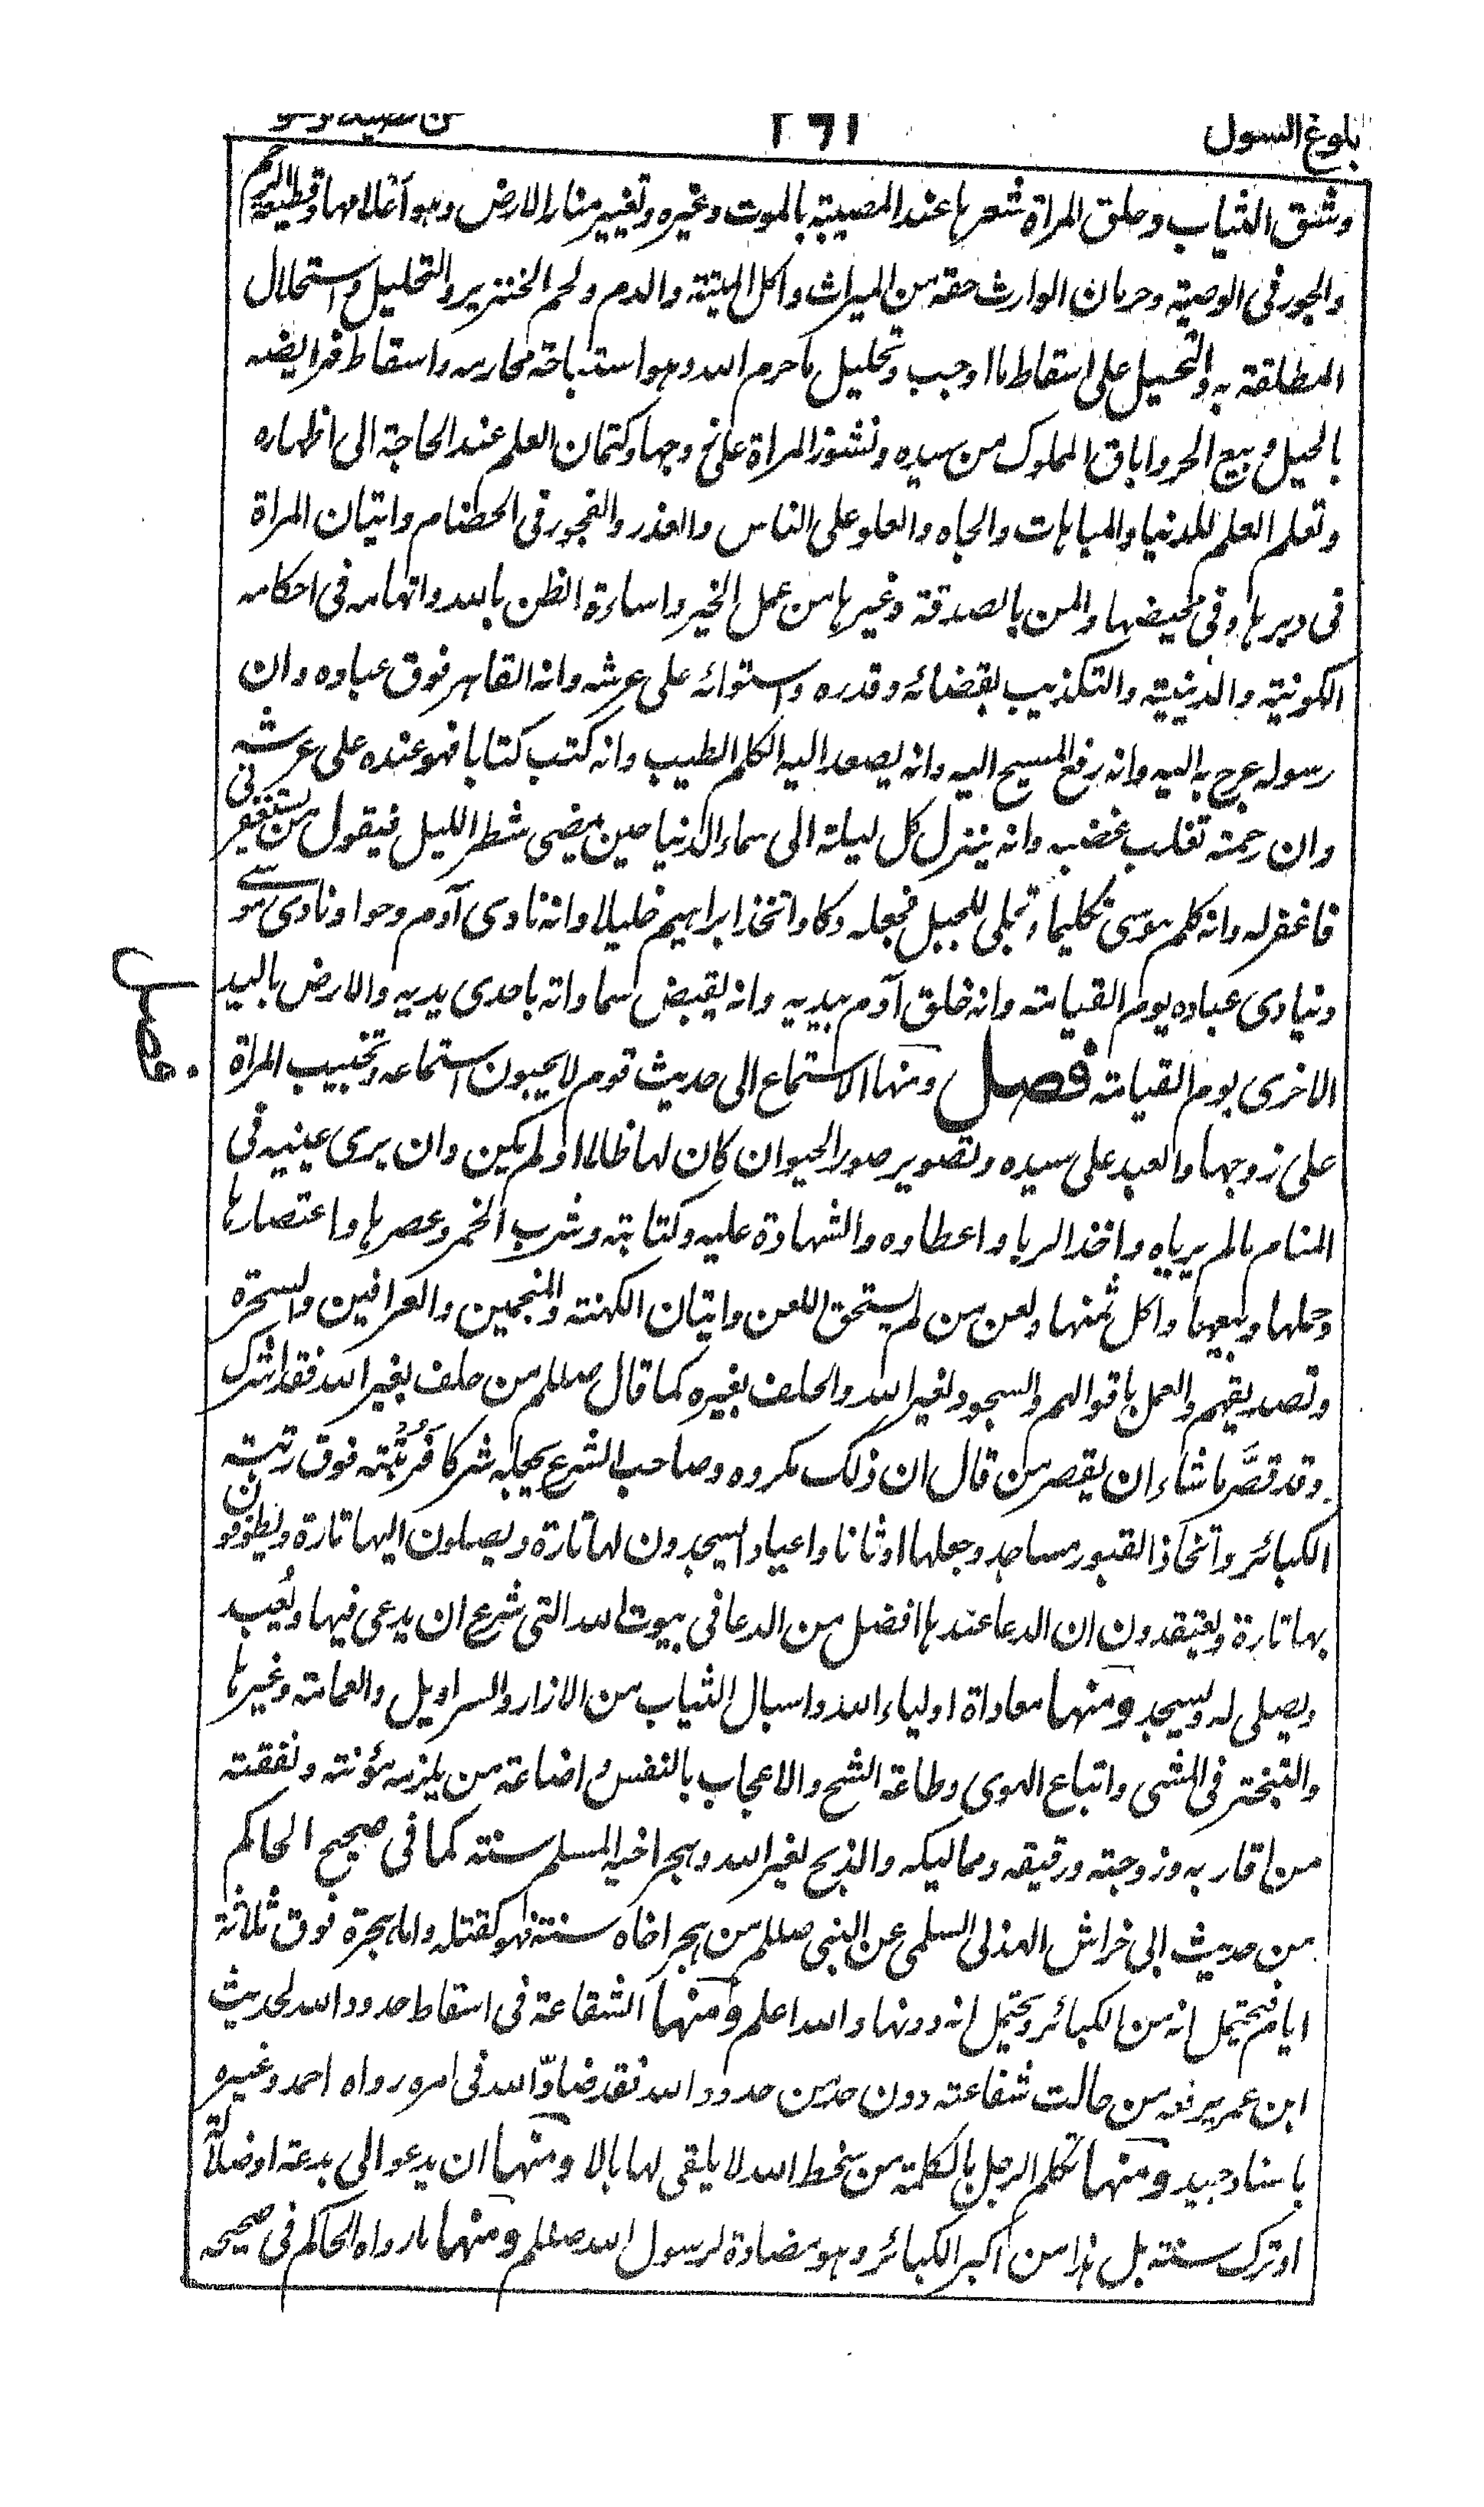 بلوغ السول ١٦١
وشق الثياب وحلق المراة شعرها عند المصيبة بالموت وغيره وتغيير منار الارض وهو اعلامها وقطيعة الرحم
والجور فى الوصية وحرمان الوارث حقه من الميراث واكل الميتة والدم ولحم الخنزير والتحليل واستحلال
المطلقة به والتحيل على اسقاط ما اوجب وتحليل ما حرم الله وهو استباحة محارمه واسقاط فرايضه
بالحيل وبيع الحر واباق المملوك من سيده ونشوز المراة على زوجها وكتمان العلم عند الحاجة الى اظهاره
وتعلم العلم للدنيا والمباهات والجاه والعلو على الناس والغدر والفجور فى الخصام واتيان المراة
فى دبرها وفى محيضها والمن بالصدقة وغيرها من عمل الخير واساءة الظن بالله واتهامه فى احكامه
الكونية والدينية والتكذيب بقضائه وقدره واستوائه على عرشه وانه القاهر فوق عباده وان
رسوله عرج به اليه وانه رفع المسيح اليه وانه يصعد اليه الكلم الطيب وانه كتب كتابا فهو عنده على عرشه
وان رحمته تغلب غضبه وانه ينزل كل ليلة الى سماء الدنيا حين يمضى شطر الليل فيقول من يستغفرنى
فاغفر له وانه كلم موسى تكليما وتجلى للجبل فجعله دكا واتخذ ابراهيم خليلا وانه نادى آدم وحوا ونادى موسى
وينادى عباده يوم القيامة وانه خلق آدم بيديه وانه يقبض سماواته باحدى يديه والارض باليد
الاخرى يوم القيامة فصل ومنها الاستماع الى حديث قوم لا يحبون استماعه وتخبيب المراة
على زوجها والعبد على سيده وتصوير صور الحيوان كان لها ظل ام لم يكن وان يرى عينيه فى
المنام مالم يرياه واخذ الربا واعطاوه والشهادة عليه وكتابته وشرب الخمر وعصرها واعتصارها
وحملها وبيعها واكل ثمنها ولعن من لم يستحق اللعن واتيان الكهنة والمنجمين والعرافين والسحرة
وتصديقهم والعمل باقوالهم والسجود لغير الله والحلف بغيره كما قال صللم من حلف بغير الله فقد اشرك
وقد قصَّر ما شاء ان يقصر من قال ان ذلك مكروه وصاحب الشرع يجعله شركا فرُتْبته فوق رتبة
الكبائر واتخاذ القبور مساجد وجعلها اوثانا واعيادا يسجدون لها تارة ويصلون اليها تارة ويطوفون
بها تارة ويعتقدون ان الدعا عندها افضل من الدعا فى بيوت الله التى شرع ان يدعى فيها ويُعبد
ويصلى له ويسجد ومنها معاداة اولياء الله واسبال الثياب من الازار والسراويل والعمامة وغيرها
والتبختر فى المشى واتباع الهوى وطاعة الشح والاعجاب بالنفس واضاعة من يلزمه مؤنته ونفقته
من اقاربه وزوجته ورقيقه ومماليكه والذبح لغير الله وهجر اخيه المسلم سنة كما فى صحيح الحاكم
من حديث ابى خراش الهذلى السلمى عن النبى صللم من هجر اخاه سنة فهو كقتله واما هجرة فوق ثلاثة
ايام فيحتمل انه من الكبائر ويحتمل انه دونها والله اعلم ومنها الشفاعة فى اسقاط حدود الله لحديث
ابن عمر يرفعه من حالت شفاعته دون حد من حدود الله فقد ضادّ الله فى امره رواه احمد وغيره
باسناد جيد ومنها تكلم الرجل بالكلمة من سخط الله لا يلقى لها بالا ومنها ان يدعو الى بدعة او ضلالة
او ترك سنة بل هذا من اكبر الكبائر وهو مضادة لرسول الله صللم ومنها ما رواه الحاكم فى صحيحه